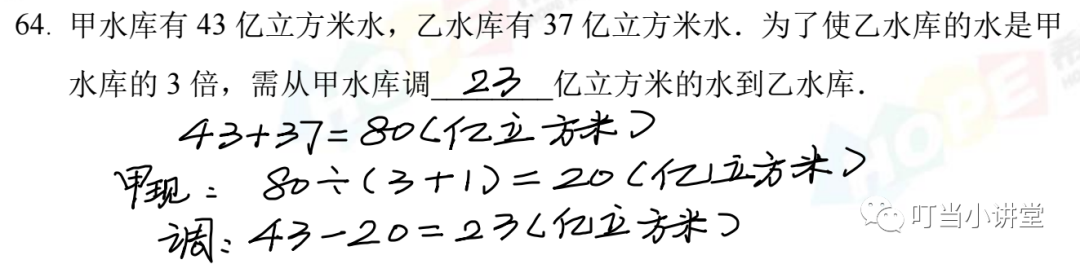 64. 甲水库有 43 亿立方米水，乙水库有 37 亿立方米水．为了使乙水库的水是甲
水库的 3 倍，需从甲水库调 23 亿立方米的水到乙水库．
43+37=80(亿立方米)
甲现：80÷(3+1)=20(亿立方米)
调：43-20=23(亿立方米)
HOPE
HOPE
叮当小讲堂